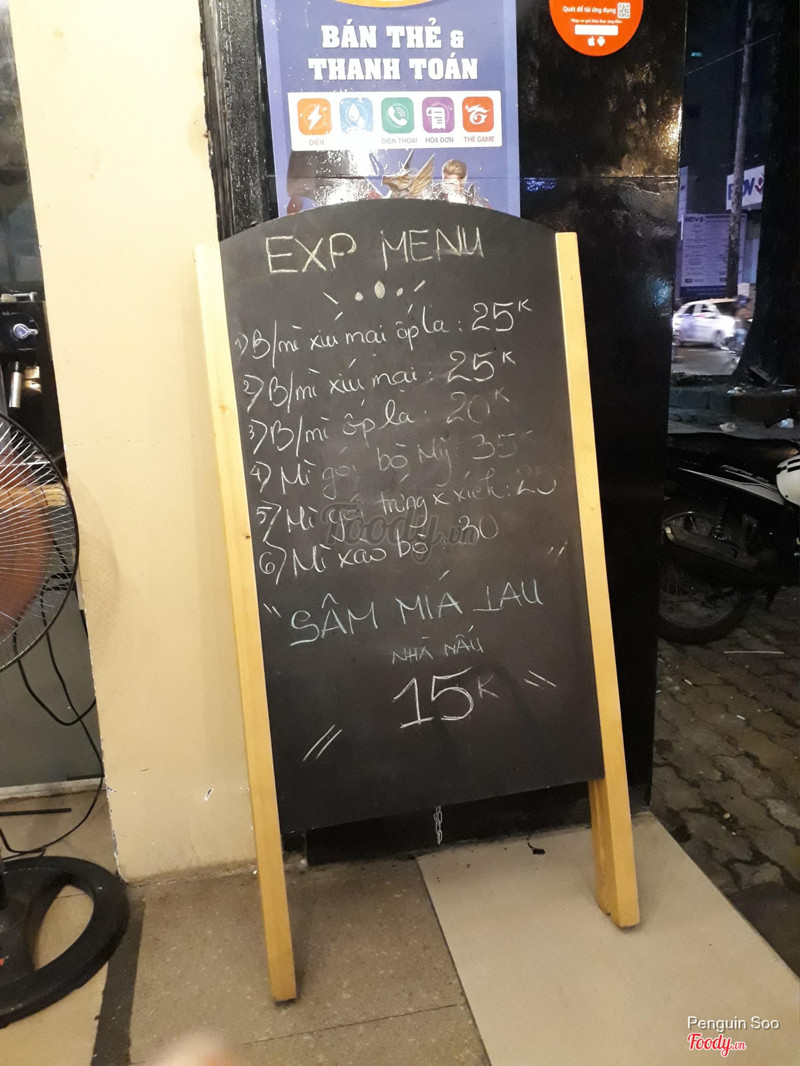 Quét để tải ứng dụng
BÁN THẺ &
THANH TOÁN
ĐIỆN
ĐIỆN THOẠI
HÓA ĐƠN
THẺ GAME
BIDV
EXP MENU
1) B/mì xíu mại ốp la : 25K
2) B/mì xíu mại : 25K
3) B/mì ốp la : 20K
4) Mì gói bò Mỹ : 35K
5) Mì gói trứng x xích : 25
6) Mì xào bò : 30
"SÂM MÍA LAU
NHÀ NẤU
15K
Foody.vn
Penguin Soo
Foody.vn